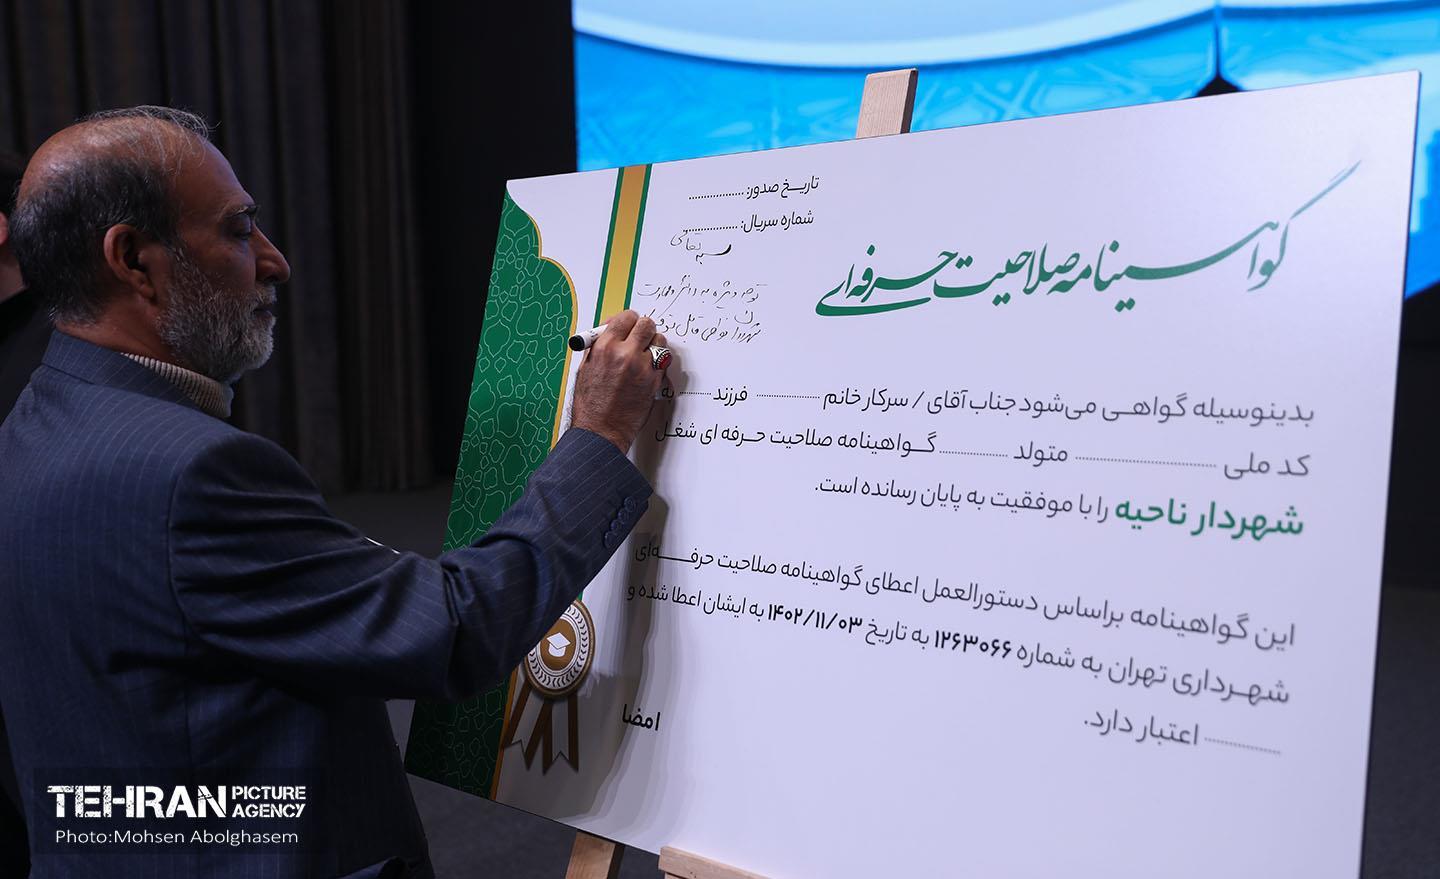 تاریخ صدور: ..................
شماره سریال: ..................
گواهینامه صلاحیت حرفه‌ای
بسمه تعالی
توجه ویژه به دانش و مهارت
شهرداران نواحی قابل
بدینوسیله گواهی می‌شود جناب آقای / سرکار خانم .................... فرزند .......... به
کد ملی ........................................ متولد .................... گواهینامه صلاحیت حرفه ای شغل
شهردار ناحیه را با موفقیت به پایان رسانده است.
این گواهینامه براساس دستورالعمل اعطای گواهینامه صلاحیت حرفه‌ای
شهرداری تهران به شماره ۱۲۶۳۰۶۶ به تاریخ ۱۴۰۲/۱۱/۰۳ به ایشان اعطا شده و
.................... اعتبار دارد.
امضا
TEHRAN PICTURE AGENCY
Photo:Mohsen Abolghasem